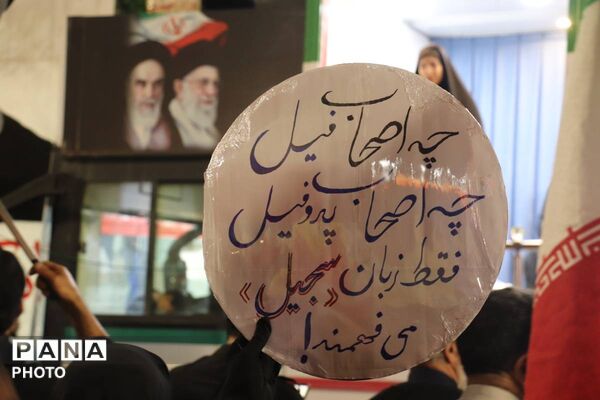 چه اصحاب فیل
چه اصحاب پدوفیل
فقط زبان «سجیل»
می فهمند!
PANA
PHOTO